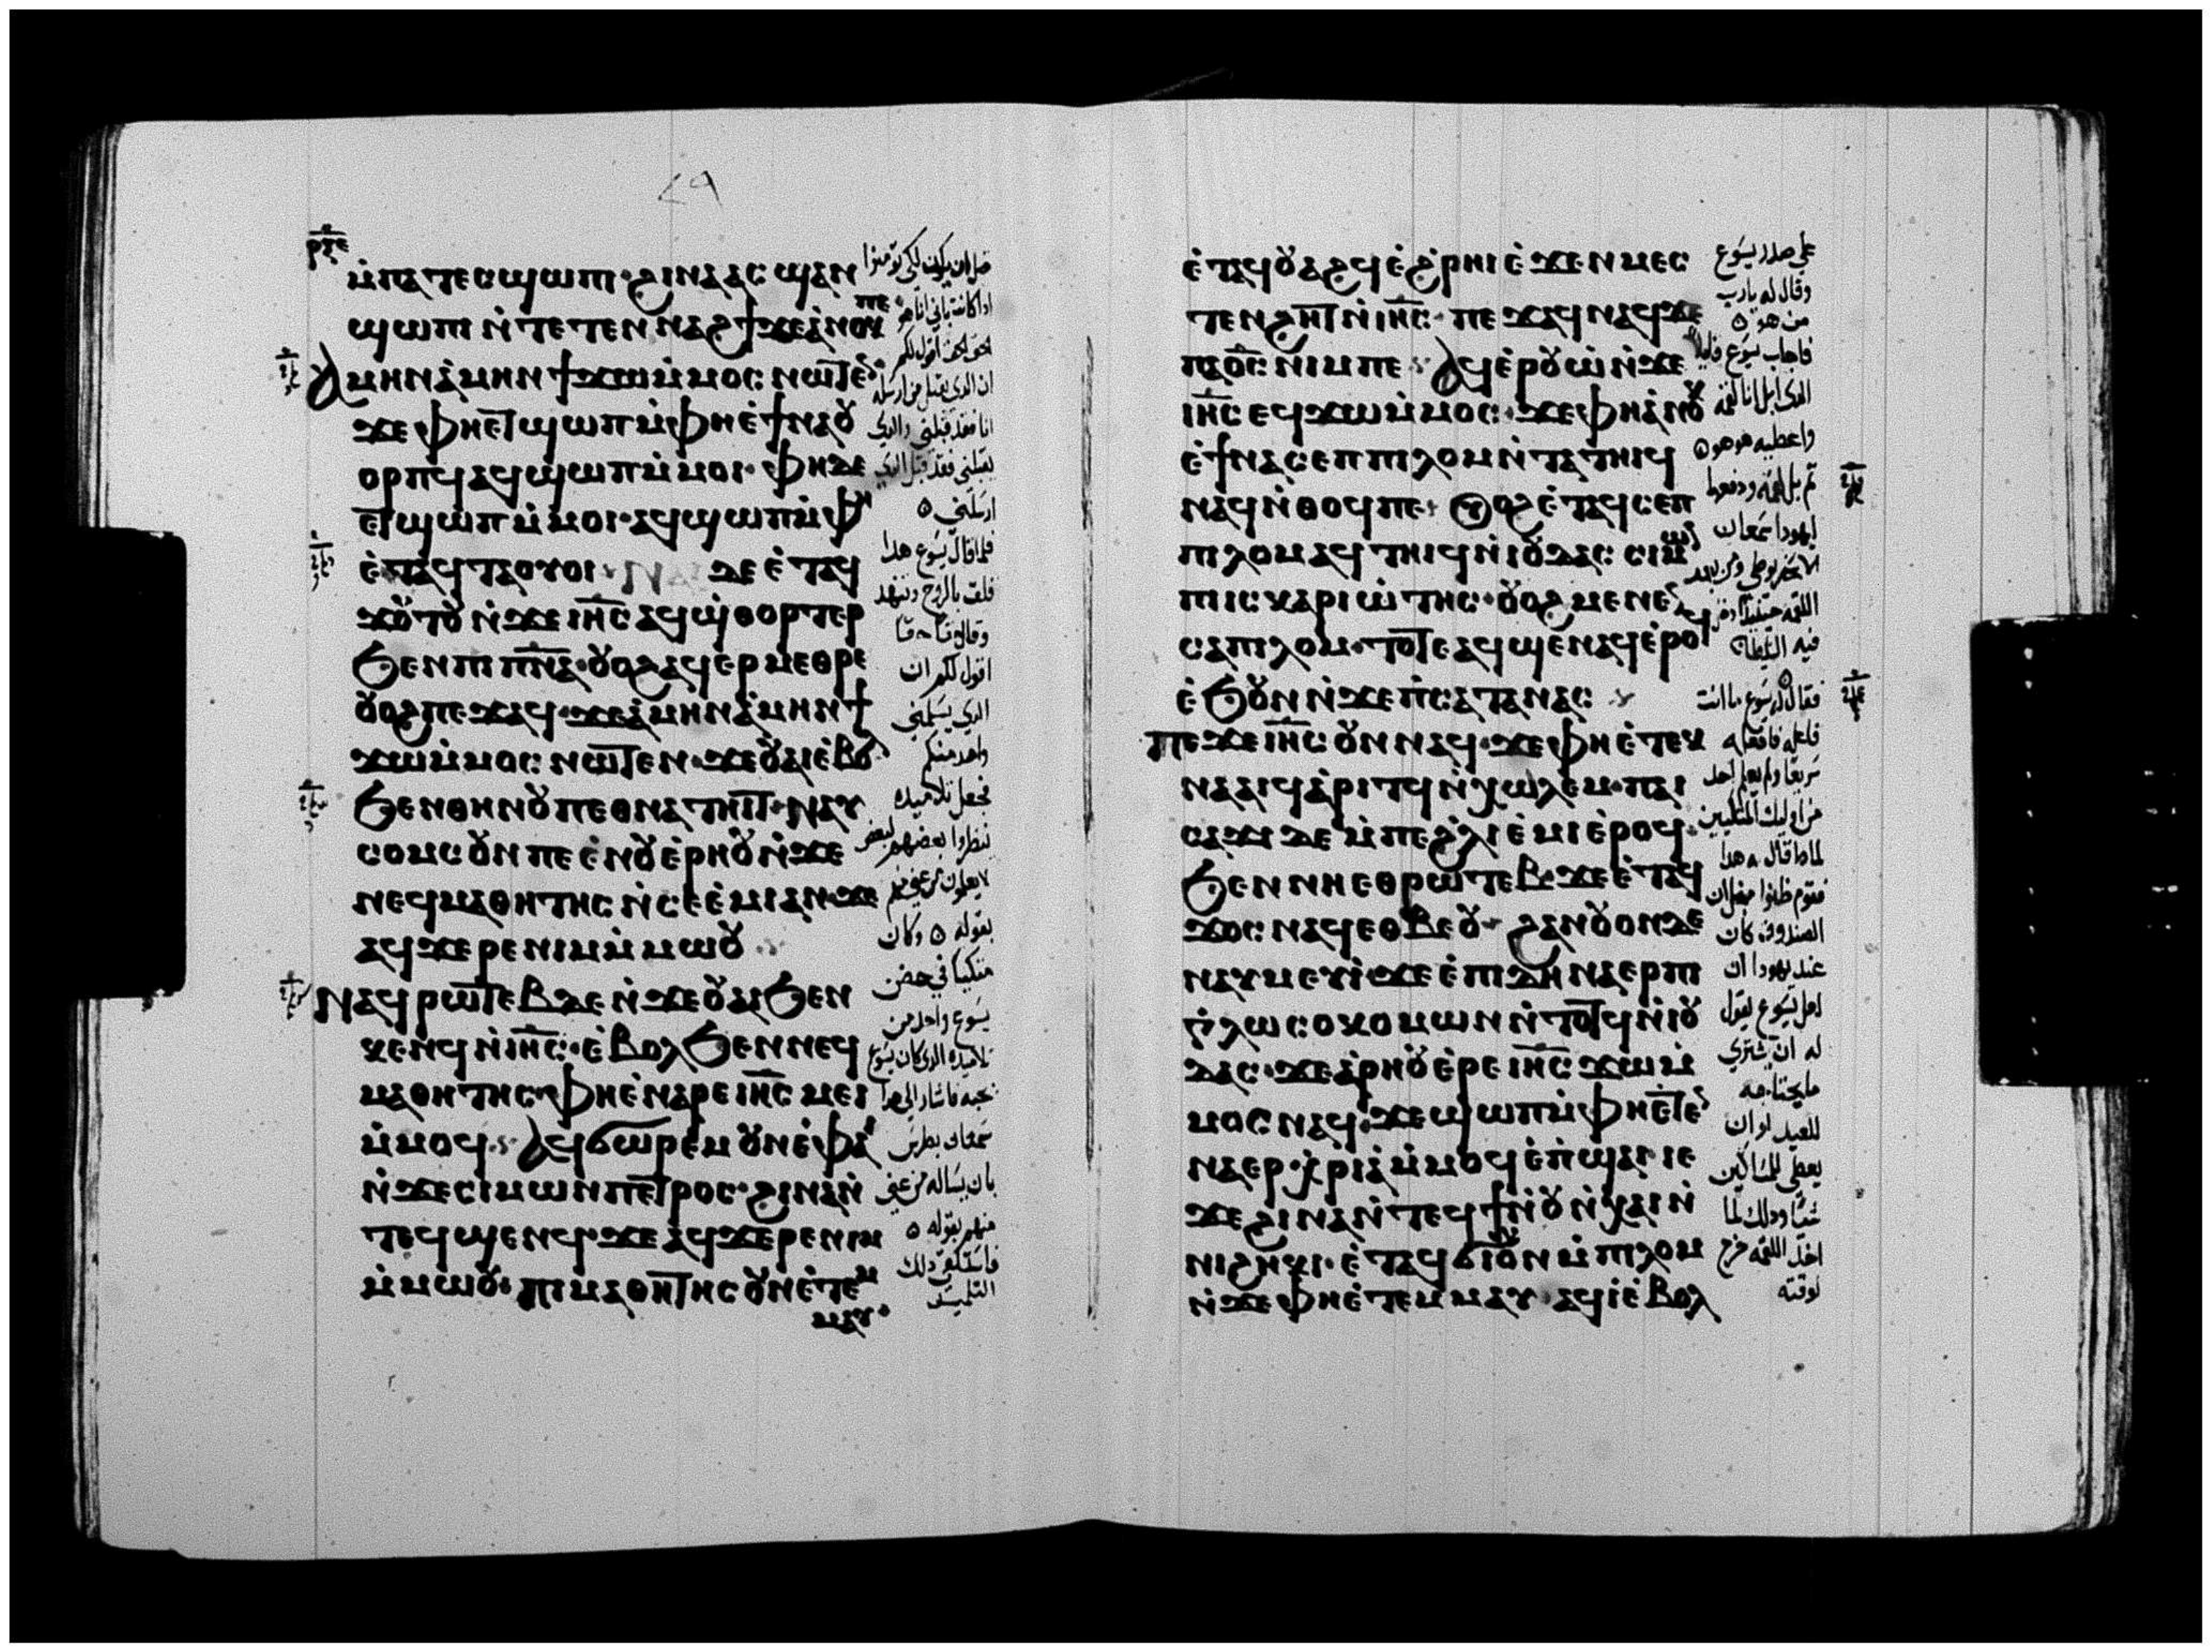 ⲣⲝⲉ
ⲙ̀ⲡⲁⲧⲉⲥϣⲱⲡⲓ· ϩⲓⲛⲁ ⲁⲥϣⲁⲛ
ϣⲱⲡⲓ ⲛ̀ⲧⲉⲧⲉⲛⲛⲁϩϯ ϫⲉ ⲁ̀ⲛⲟⲕ ⲡⲉ
ⲁⲙⲏⲛ ⲁ̀ⲙⲏⲛ ϯϫⲱ ⲙ̀ⲙⲟⲥ ⲛⲱⲧⲉⲛ
ϫⲉ ⲫⲏⲉⲧϣⲱⲡ ⲙ̀ⲫⲏⲉ̀ϯⲛⲁⲟⲩ
ⲟⲣⲡϥ ⲁϥϣⲱⲡ ⲙ̀ⲙⲟⲓ· ⲫⲏ ⲇⲉ
ⲉⲧϣⲱⲡ ⲙ̀ⲙⲟⲓ· ⲁϥϣⲱⲡ ⲙ̀ⲫⲏ
ⲉ̀ⲧⲁϥⲧⲁⲟⲩⲟⲓ ⲛⲁⲓ ⲇⲉ ⲉ̀ⲧⲁϥ
ϫⲟⲧⲟⲩ ⲛ̀ϫⲉ ⲓⲏ̅ⲥ̅ ⲁϥϣ̀ⲑⲟⲣⲧⲉⲣ
ϧⲉⲛ ⲡⲓⲡ̅ⲛ̅ⲁ̅· ⲟⲩⲟϩ ⲁϥⲉⲣⲙⲉⲑⲣⲉ
ⲟⲩⲟϩ ⲡⲉϫⲁϥ· ϫⲉ ⲁ̀ⲙⲏⲛ ⲁ̀ⲙⲏⲛ ϯ
ϫⲱ ⲙ̀ⲙⲟⲥ ⲛⲱⲧⲉⲛ· ϫⲉ ⲟⲩⲁⲓ ⲉ̀ⲃⲟⲗ
ϧⲉⲛ ⲑⲏⲛⲟⲩ ⲡⲉⲑⲛⲁⲧⲏⲓⲧ· ⲛⲁⲩ
ⲥⲟⲙⲥ ⲟⲩⲛ ⲡⲉ ⲉ̀ⲛⲟⲩⲉ̀ⲣⲏⲟⲩ ⲛ̀ϫⲉ
ⲛⲉϥⲙⲁⲑⲏⲧⲏⲥ ⲛ̀ⲥⲉⲉ̀ⲙⲓ ⲁⲛ· ϫⲉ
ⲁϥϫⲉⲣⲉ ⲛⲓⲙ ⲙ̀ⲙⲱⲟⲩ
ⲛⲁϥⲣⲱⲧⲉⲃ ⲇⲉ ⲛ̀ϫⲉ ⲟⲩⲁⲓ ϧⲉⲛ
ⲕⲉⲛϥ ⲛ̀ⲓⲏ̅ⲥ̅· ⲉ̀ⲃⲟⲗϧⲉⲛ ⲛⲉϥ
ⲙⲁⲑⲏⲧⲏⲥ· ⲫⲏⲉ̀ⲛⲁⲣⲉ ⲓⲏ̅ⲥ̅ ⲙⲉⲓ
ⲙ̀ⲙⲟϥ· ⲁϥϭⲱⲣⲉⲙ ⲟⲩⲛ ⲉ̀ⲫⲁⲓ
ⲛ̀ϫⲉ ⲥⲓⲙⲱⲛ ⲡⲉⲧⲣⲟⲥ· ϩⲓⲛⲁ ⲛ̀
ⲧⲉϥϣⲉⲛϥ· ϫⲉ ⲁϥϫⲉⲣⲉ ⲛⲓⲙ
ⲙ̀ⲙⲱⲟⲩ· ⲡⲓⲙⲁⲑⲏⲧⲏⲥ ⲟⲩⲛ ⲉ̀ⲧⲉⲙ
ⲙⲁⲩ·
قبل ان يكون لكي تومنوا
اذا كانت باني انا هو
الحق الحق اقول لكم
ان الدي يقبل من ارسله
انا فقد قبلني والدي
يقبلني فقد قبل الدي
ارسلني
فلما قال يسوع هدا
قلق بالروح
وقال حقا حقا
اقول لكم ان
الدي يسلمني
واحد منكم
فجعل تلاميده
ينظروا بعضهم لبعض
لا يعلمون من عني منهم
بقوله وكان
متكيا في حضن
يسوع واحد من
تلاميده الدي كان يسوع
يحبه فاشار الى هدا
سمعان بطرس
بان يساله من عني
منهم بقوله
دلك
التلميد
ⲉ̀ⲧⲁϥⲟⲩⲁϩϥ ⲉ̀ϩ̀ⲣⲏⲓ ⲉ̀ϫⲉⲛ ⲙⲉⲥ
ⲧⲉⲛϩⲏⲧ ⲛ̀ⲓⲏ̅ⲥ̅· ⲡⲉϫⲁϥ ⲛⲁϥ ϫⲉ
ⲡⲁϭ̅ⲥ̅ ⲛⲓⲙ ⲡⲉ ⲁϥⲉ̀ⲣⲟⲩⲱ̀ ⲛ̀ϫⲉ
ⲓⲏ̅ⲥ̅ ⲉϥϫⲱ ⲙ̀ⲙⲟⲥ· ϫⲉ ⲫⲏ ⲁ̀ⲛⲟⲕ
ⲉ̀ϯⲛⲁⲥⲉⲡ ⲡⲓⲗⲱⲙ ⲛ̀ⲧⲁⲧⲏⲓϥ
ⲛⲁϥ ⲛ̀ⲑⲟϥ ⲡⲉ· ⲟⲩⲟϩ ⲉ̀ⲧⲁϥⲥⲉⲡ
ⲡⲓⲗⲱⲙ ⲁϥⲧⲏⲓϥ ⲛ̀ⲓⲟⲩⲇⲁⲥ ⲥⲓⲙⲱⲛ
ⲡⲓⲥⲕⲁⲣⲓⲱ̀ⲧⲏⲥ· ⲟⲩⲟϩ ⲙⲉⲛⲉⲛ
ⲥⲁ ⲡⲓⲗⲱⲙ· ⲧⲟⲧⲉ ⲁϥϣⲉⲛⲁϥ ⲉ̀ⲣⲟϥ
ⲉ̀ϧⲟⲩⲛ ⲛ̀ϫⲉ ⲡ̀ⲥⲁⲧⲁⲛⲁⲥ
ⲡⲉϫⲉ ⲓⲏ̅ⲥ̅ ⲟⲩⲛ ⲛⲁϥ· ϫⲉ ⲫⲏⲉ̀ⲧⲉⲕ
ⲛⲁⲁⲓϥ ⲁ̀ⲣⲓⲧϥ ⲛ̀ⲭⲱⲗⲉⲙ· ⲡⲁⲓ
ⲥⲁϫⲓ ⲇⲉ ⲙ̀ⲡⲉ ϩ̀ⲗⲓ ⲉ̀ⲙⲓ ⲉ̀ⲣⲟϥ·
ϧⲉⲛ ⲛⲏⲉⲑⲣⲱⲧⲉⲃ· ϫⲉ ⲉ̀ⲧⲁϥ
ϫⲟⲥ ⲛⲁϥ ⲉⲑⲃⲉⲟⲩ ϩⲁⲛⲟⲩⲟⲛ ⲇⲉ
ⲛⲁⲩⲙⲉⲩⲓ̀· ϫⲉ ⲉ̀ⲡⲓⲇⲏ ⲛⲁⲉⲣⲉ ⲡⲓ
ⲅ̀ⲗⲱⲥⲟⲕⲟⲙⲱⲛ ⲛ̀ⲧⲟⲧϥ ⲛ̀ⲓⲟⲩ
ⲇⲁⲥ· ϫⲉ ⲁⲣⲏⲟⲩ ⲉ̀ⲣⲉ ⲓⲏ̅ⲥ̅ ϫⲱ ⲙ̀
ⲙⲟⲥ ⲛⲁϥ· ϫⲉ ϣⲱⲡ ⲙ̀ⲫⲏⲉ̀ⲧⲉⲛ
ⲛⲁⲉⲣⲭ̀ⲣⲓⲁ̀ ⲙ̀ⲙⲟϥ ⲉ̀ⲡ̀ϣⲁⲓ ⲓⲉ
ϫⲉ ϩⲓⲛⲁ ⲛ̀ⲧⲉϥϯ ⲛ̀ⲟⲩⲛ̀ⲭⲁⲓ ⲛ̀
ⲛⲓϩⲏⲕⲓ· ⲉ̀ⲧⲁϥϭⲓ ⲟⲩⲛ ⲙ̀ⲡⲓⲗⲱⲙ
ⲛ̀ϫⲉ ⲫⲏⲉ̀ⲧⲉⲙⲙⲁⲩ ⲁϥⲓ̀ ⲉ̀ⲃⲟⲗ
على صدر يسوع
وقال له يارب
من هو
فاجاب يسوع قايلا
الدي ابل انا لقمه
واعطيه هو هو
ثم بل لقمه ودفعها
ليهودا سمعان
الاسخريوطي ومن بعد
اللقمه حينيد
فيه الشيطان
فقال له يسوع ما انت
فاعله فافعله
سريعا ولم يعلم احد
من اوليك المتكيين
لمادا قال له هدا
فقوم ظنوا
الصندوق كان
عند يهودا ان
لعل يسوع يقول
له ان يشتري
ما يحتاجه
للعيد او ان
يعطي للمساكين
شيا ودلك لما
اخد اللقمه خرج
لوقته